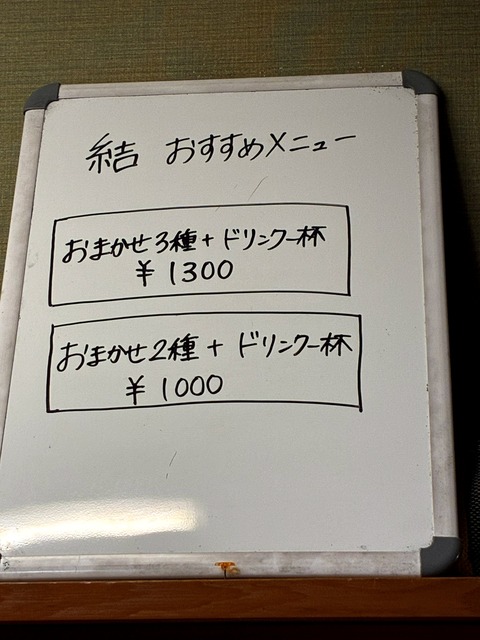 結 おすすめメニュー
おまかせ3種+ドリンク一杯
¥1300
おまかせ2種+ドリンク一杯
¥1000